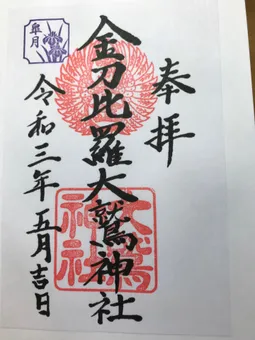 奉拝
金刀比羅大鷲神社
令和三年五月吉日
皐月
大鷲神社